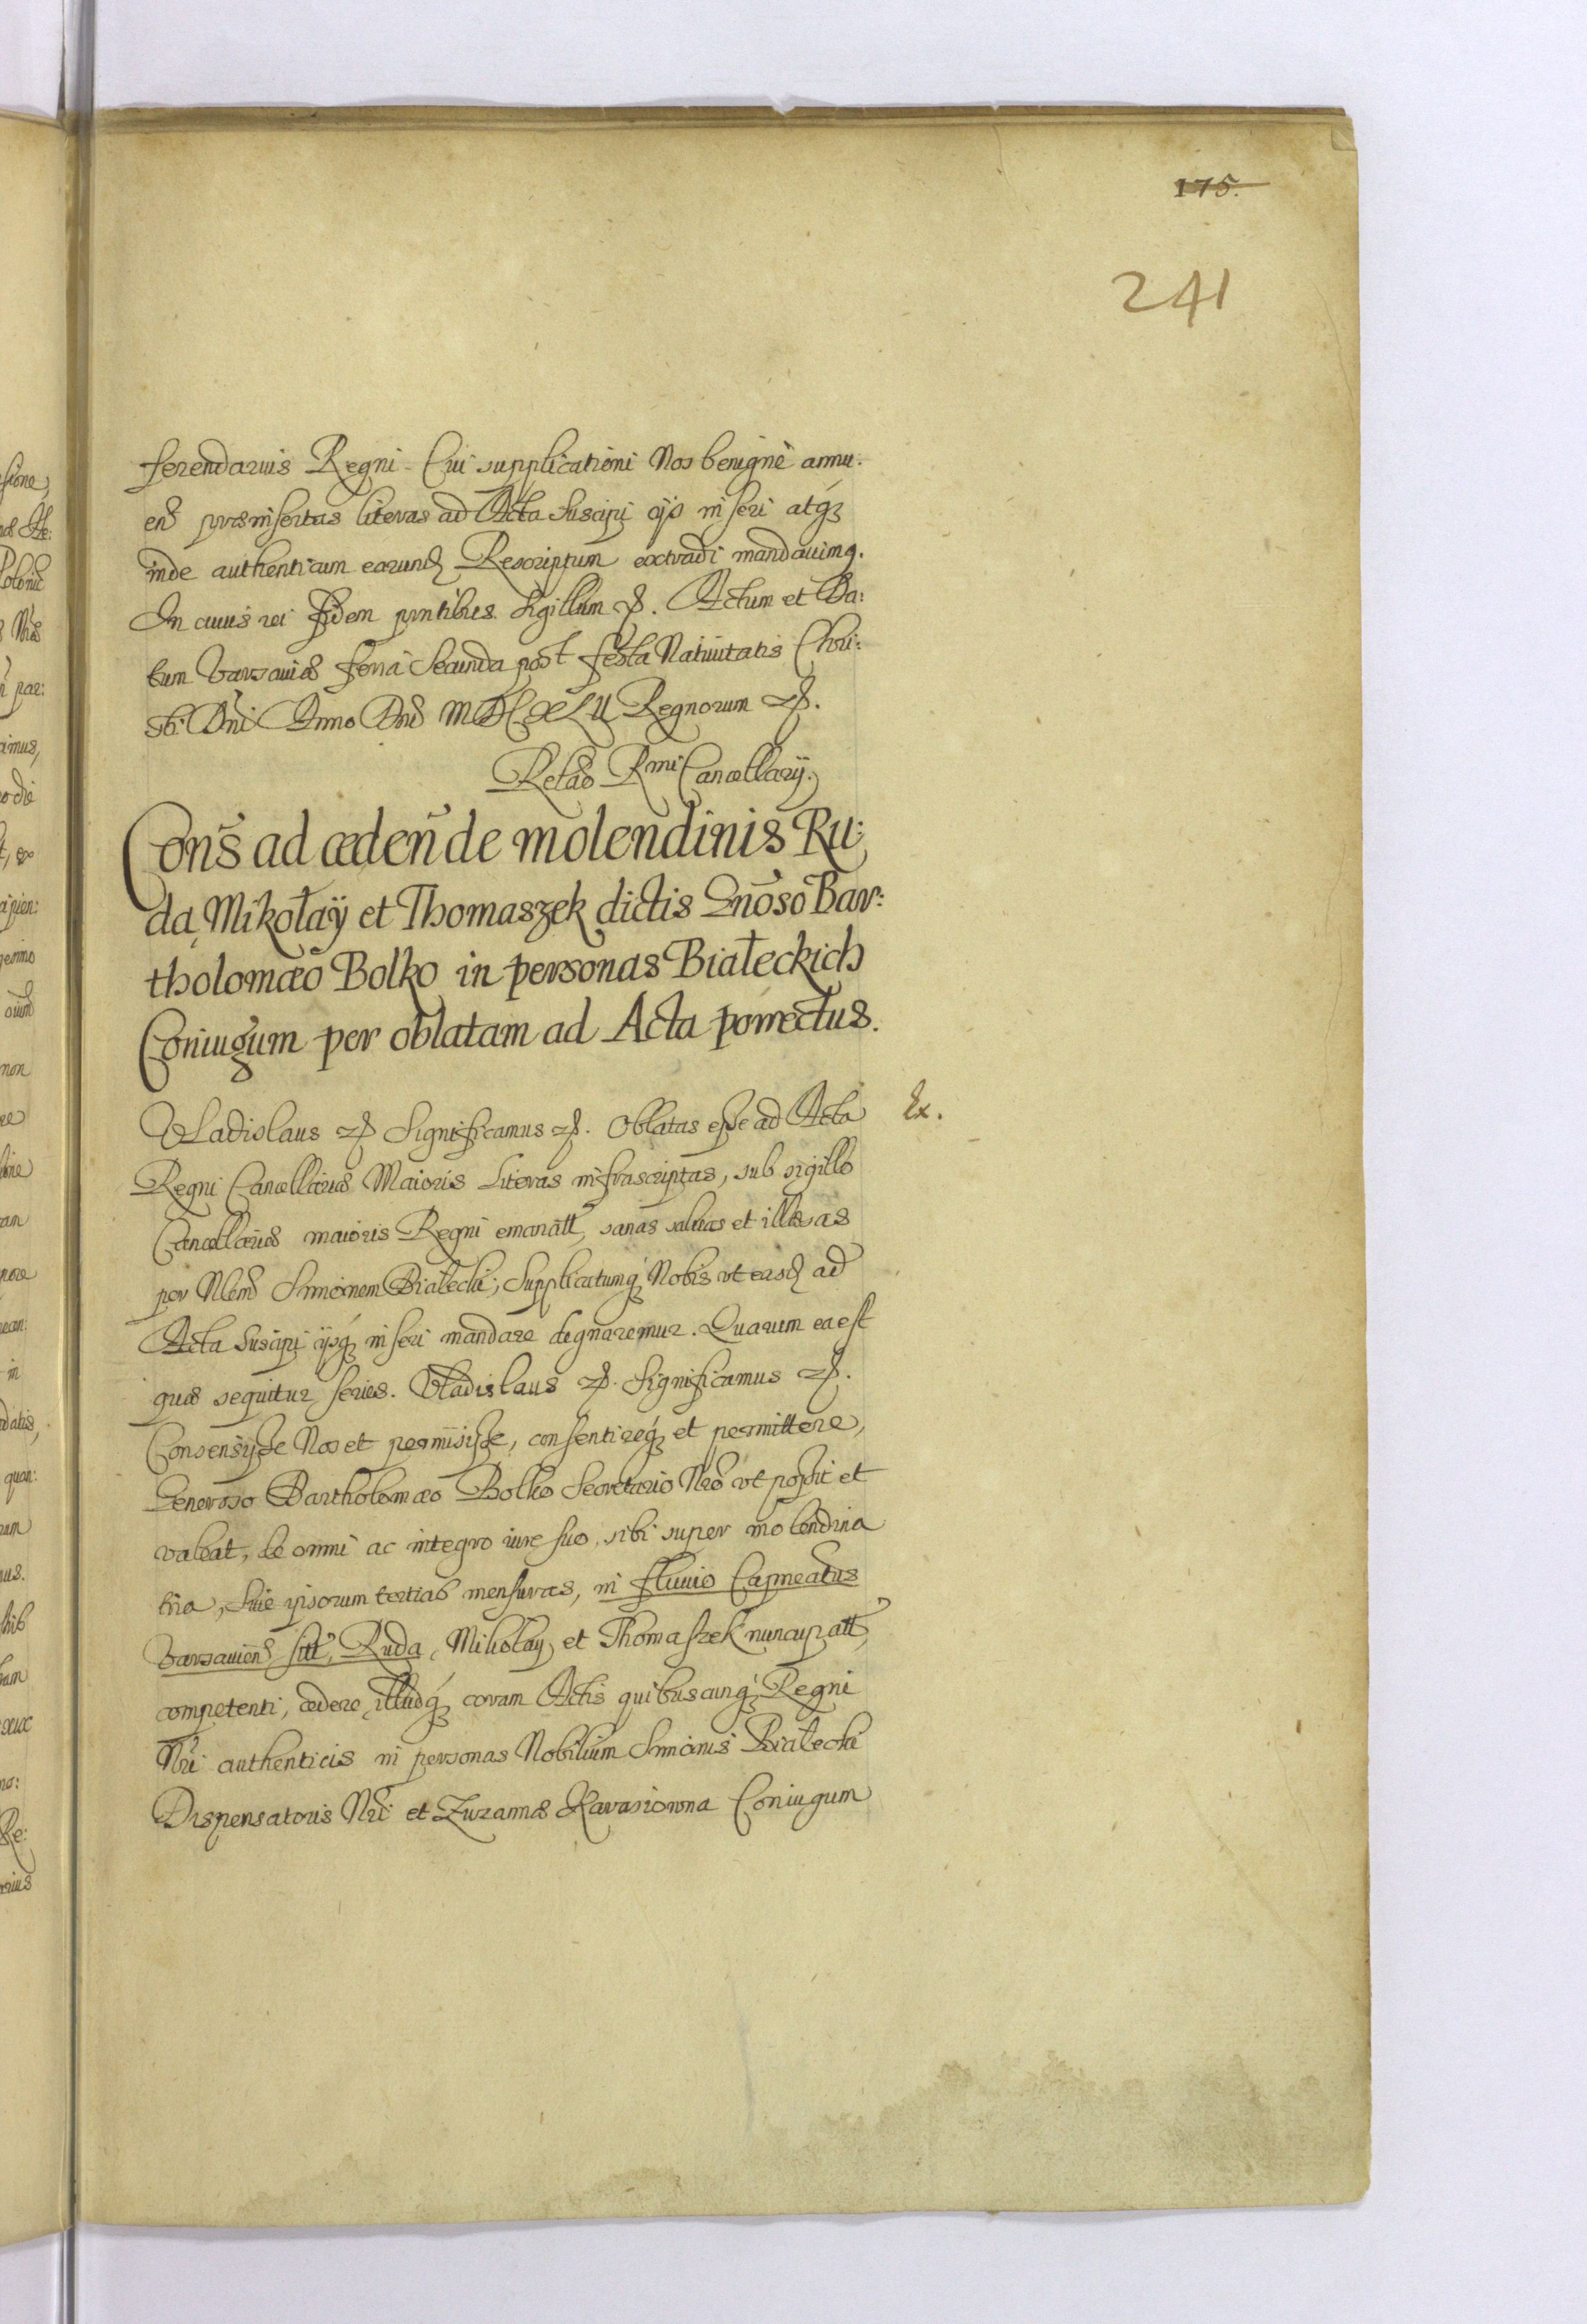 175.
241
ferendarius Regni. Cui supplicationi Nos benigne annu:
en̄ præinsertas literas ad Acta suscipi ijs inseri atq́ʒ
inde authenticum earund Rescriptum extradi mandauimꝯ.
In cuius rei fidem pn̄tibus. Sigillum etc. Actum et Da:
tum Varsauiæ feria Secunda post festa Natiuitatis Chri:
sti Dn̄i Anno Dn̄i MDCXLII Regnorum etc.
Relāo Rmi Cancellarij.
Cons̄ ad cēden̄ de molendinis Ru:
da, Mikołaÿ et Thomaszek dictis Gnōso Bar:
tholomæo Bolko in personas Białeckich
Coniugum per oblatam ad Acta porrectus.
Vladislaus etc. Significamus etc. Oblatas esse ad Acta
Ex.
Regni Cancellariæ Maioris Literas infrascriptas, sub sigillo
Cancellariæ maioris Regni emanatt, sanas saluas et illæsas
per Nlem Simonem Białecki; Supplicatumq́ʒ Nobis vt easd ad
Acta suscipi ijsq́ʒ inseri mandare dignaremur. Quarum ea est
quæ sequitur series. Vladislaus etc. Significamus etc.
Consensisse Nos et permisisse, consentireq́ʒ et permittere,
Generoso Bartholomæo Bolko Secretario Nr̄o vt possit et
valeat, de omni ac integro iure suo, sibi super molendina
tria, siue ipsorum tertias mensuras, in fluuio Capineatus
Varsauien̄ sitt, Ruda, Mikołay, et Thomaszek nuncupatt,
competenti, cedere, illudq́ʒ coram Actis quibuscunq́ʒ Regni
Nr̄i authenticis in personas Nobilium Simonis Białecki
Dispensatoris Nr̄i et Zuzannæ Karasiowna Coniugum